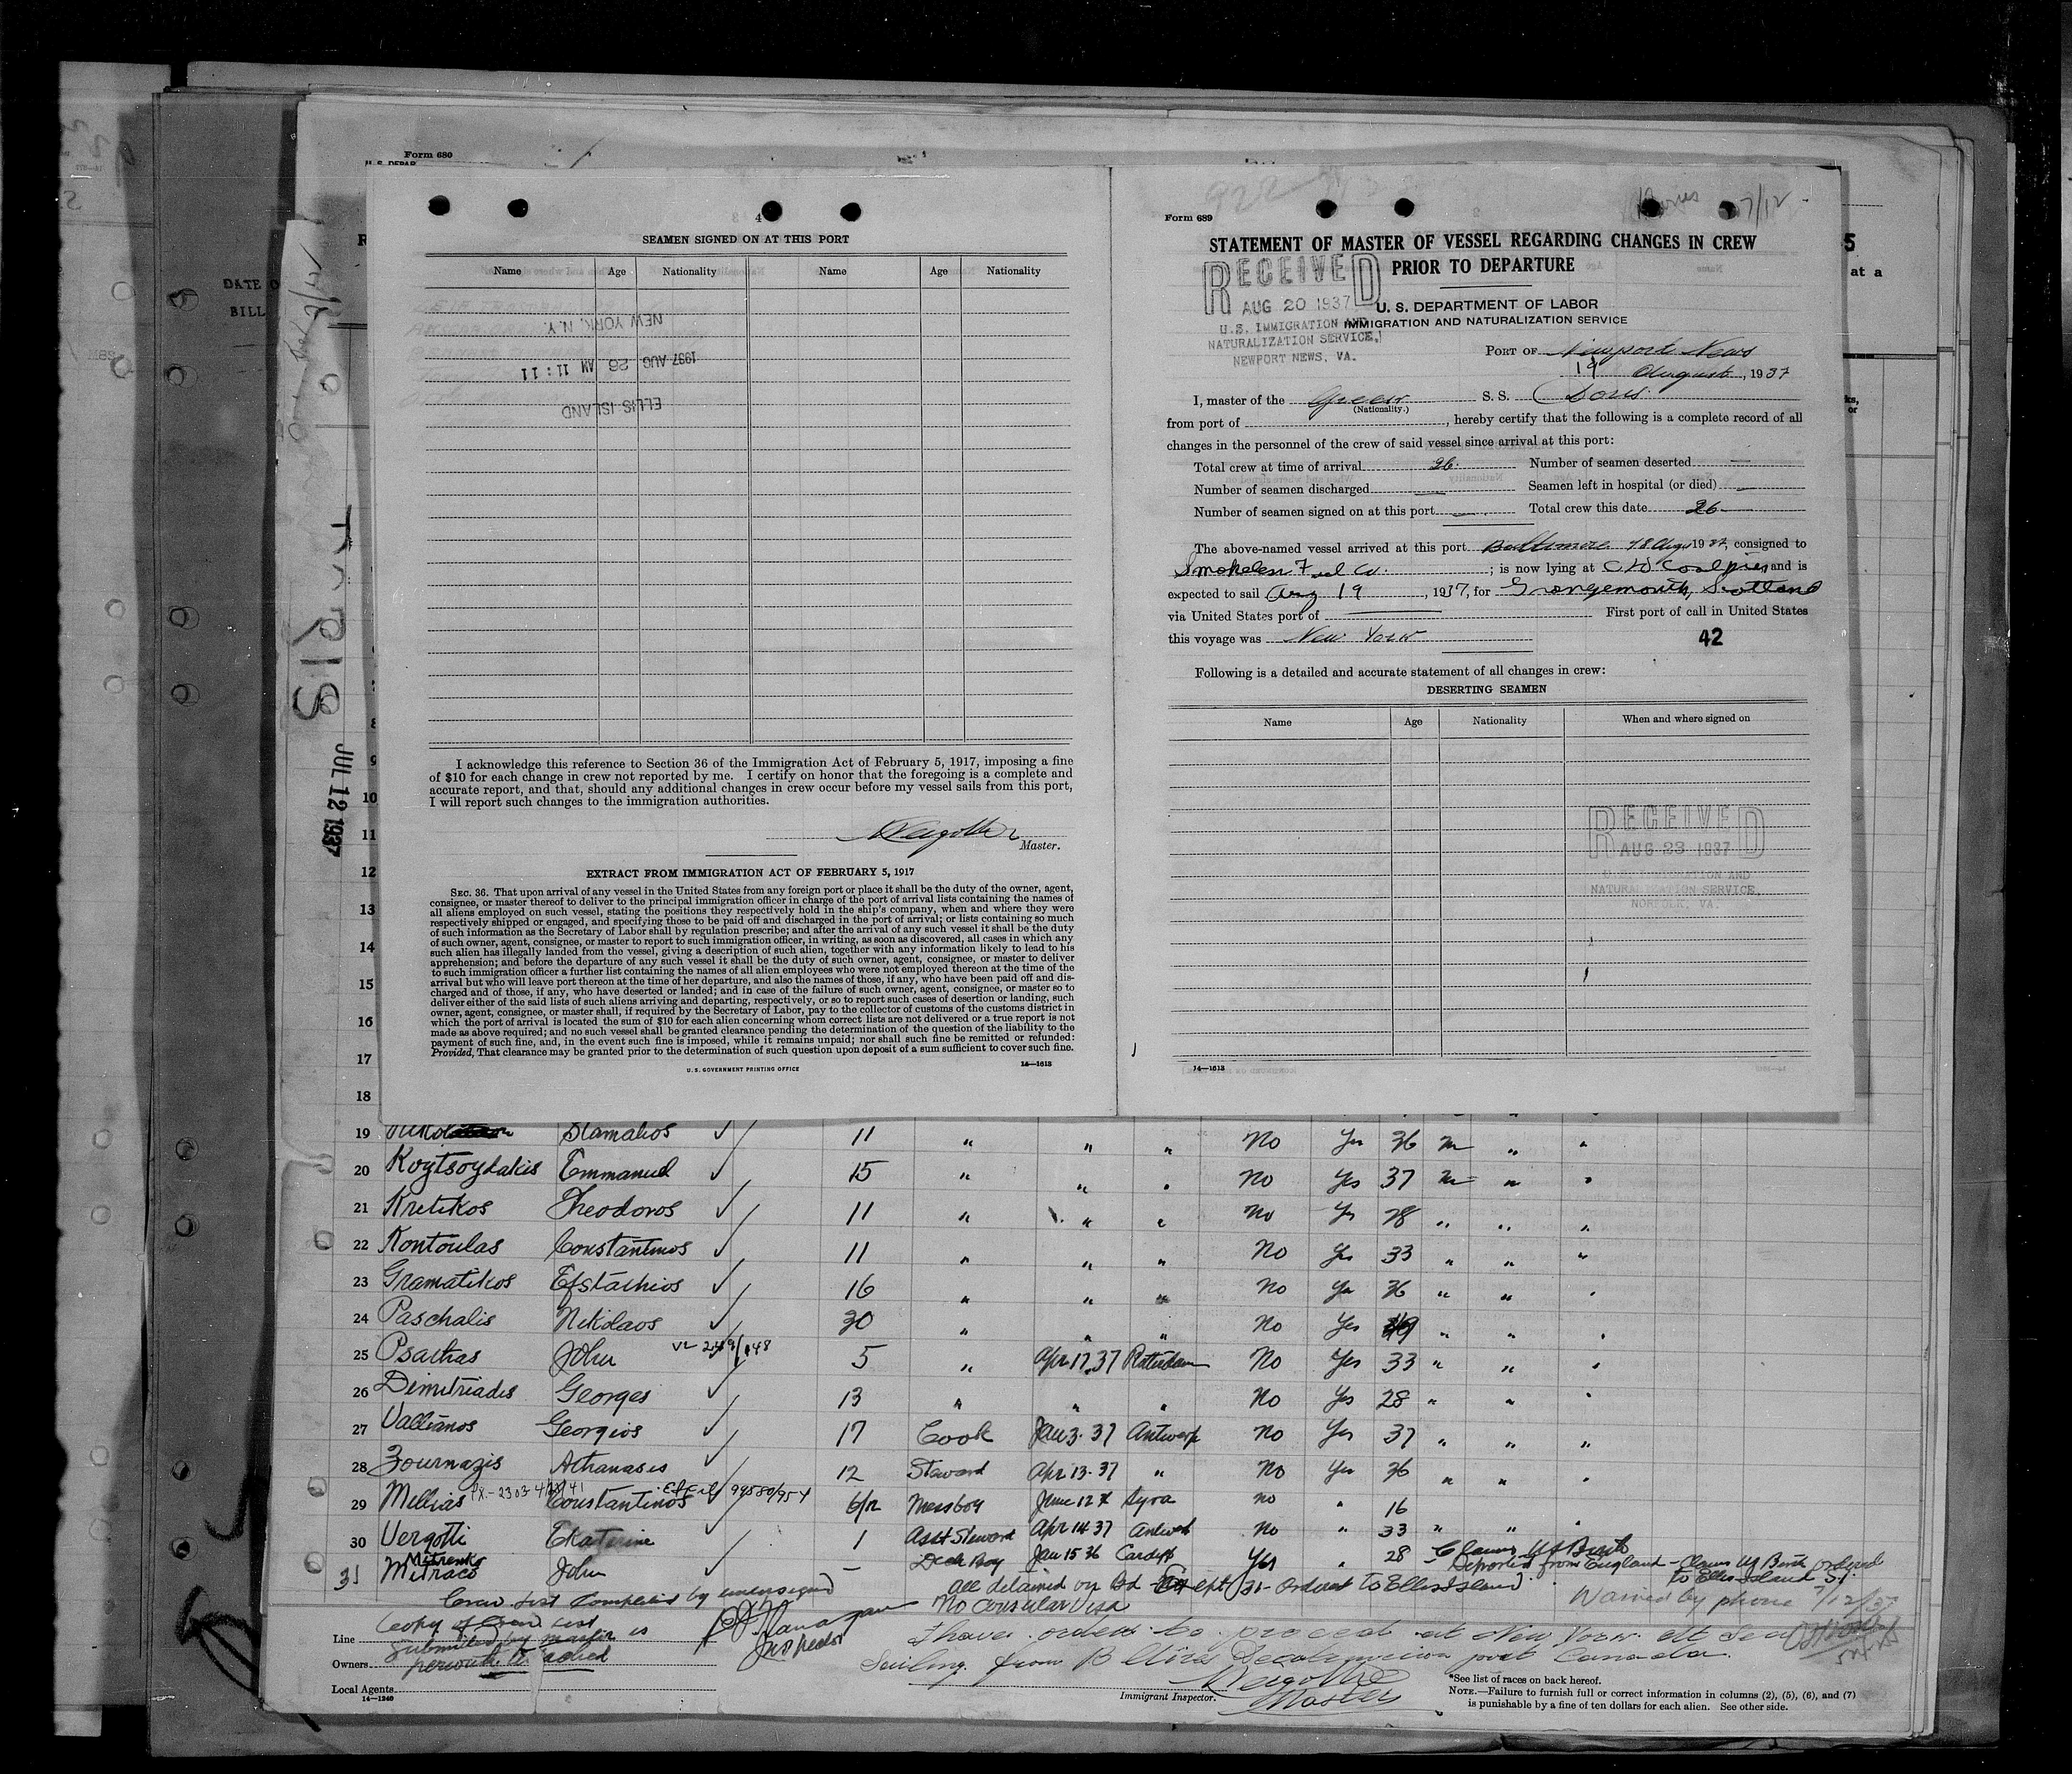 Form 680
U. S. DEPAR
DATE O
BILL
5
at a
4
SEAMEN SIGNED ON AT THIS PORT
Name Age Nationality Name Age Nationality
NEW YORK, N.Y.
1937 AUG 26 AM 11:11
ELLIS ISLAND
I acknowledge this reference to Section 36 of the Immigration Act of February 5, 1917, imposing a fine
of $10 for each change in crew not reported by me. I certify on honor that the foregoing is a complete and
accurate report, and that, should any additional changes in crew occur before my vessel sails from this port,
I will report such changes to the immigration authorities.
Master.
EXTRACT FROM IMMIGRATION ACT OF FEBRUARY 5, 1917
SEC. 36. That upon arrival of any vessel in the United States from any foreign port or place it shall be the duty of the owner, agent,
consignee, or master thereof to deliver to the principal immigration officer in charge of the port of arrival lists containing the names of
all aliens employed on such vessel, stating the positions they respectively hold in the ship's company, when and where they were
respectively shipped or engaged, and specifying those to be paid off and discharged in the port of arrival; or lists containing so much
of such information as the Secretary of Labor shall by regulation prescribe; and after the arrival of any such vessel it shall be the duty
of such owner, agent, consignee, or master to report to such immigration officer, in writing, as soon as discovered, all cases in which any
such alien has illegally landed from the vessel, giving a description of such alien, together with any information likely to lead to his
apprehension; and before the departure of any such vessel it shall be the duty of such owner, agent, consignee, or master to deliver
to such immigration officer a further list containing the names of all alien employees who were not employed thereon at the time of the
arrival but who will leave port thereon at the time of her departure, and also the names of those, if any, who have been paid off and dis-
charged and of those, if any, who have deserted or landed; and in case of the failure of such owner, agent, consignee, or master so to
deliver either of the said lists of such aliens arriving and departing, respectively, or so to report such cases of desertion or landing, such
owner, agent, consignee, or master shall, if required by the Secretary of Labor, pay to the collector of customs of the customs district in
which the port of arrival is located the sum of $10 for each alien concerning whom correct lists are not delivered or a true report is not
made as above required; and no such vessel shall be granted clearance pending the determination of the question of the liability to the
payment of such fine, and, in the event such fine is imposed, while it remains unpaid; nor shall such fine be remitted or refunded:
Provided, That clearance may be granted prior to the determination of such question upon deposit of a sum sufficient to cover such fine.
U. S. GOVERNMENT PRINTING OFFICE 14—1613
922
7/12
Form 689
STATEMENT OF MASTER OF VESSEL REGARDING CHANGES IN CREW
PRIOR TO DEPARTURE
RECEIVED
AUG 20 1937
U.S. IMMIGRATION AND
NATURALIZATION SERVICE,
NEWPORT NEWS, VA.
U. S. DEPARTMENT OF LABOR
IMMIGRATION AND NATURALIZATION SERVICE
PORT OF Newport News
19 August, 1937
I, master of the Greek S. S. Doris
(Nationality.)
from port of , hereby certify that the following is a complete record of all
changes in the personnel of the crew of said vessel since arrival at this port:
Total crew at time of arrival 26. Number of seamen deserted —
Number of seamen discharged — Seamen left in hospital (or died) —
Number of seamen signed on at this port — Total crew this date 26—
The above-named vessel arrived at this port Baltimore 18 Aug 1937, consigned to
Smokeless Fuel Co. ; is now lying at C+O Coal pier and is
expected to sail Aug 19, 1937, for Grangemouth, Scotland
via United States port of First port of call in United States
this voyage was New York
42
Following is a detailed and accurate statement of all changes in crew:
DESERTING SEAMEN
Name Age Nationality When and where signed on
RECEIVED
AUG 23 1937
U.S. IMMIGRATION AND
NATURALIZATION SERVICE
NORFOLK, VA.
14—1613
JUL 12 1937
8
9
10
11
12
13
14
15
16
17
18
19 Stamatios 11 " " " No Yes 36 m " "
20 Koytsoydakis Emmanuel 15 " " " No Yes 37 m " "
21 Kretikos Theodoros 11 " " " No Yes 28 " " "
22 Kontoulas Constantinos 11 " " " No Yes 33 " " "
23 Gramatikos Efstathios 16 " " " No Yes 36 " " "
24 Paschalis Nikolaos 30 " " " No Yes 49 " " "
25 Psathas John 5 " Apr 17.37 Rotterdam No Yes 33 " " "
26 Dimitriadis Georges 13 " " " No Yes 28 " " "
27 Vallianos Georgios 17 Cook Jan 3. 37 Antwerp No Yes 37 " " "
28 Zournazis Athanasis 12 Steward Apr 13. 37 " No Yes 36 " " "
29 Millias Constantinos 6/12 Messboy June 12 Syra no " 16
30 Vergotti Ekaterine 1 Asst Steward Apr 14 37 Antwerp No " 33 " "
31 Mitraco Mitrenko John — Deck Boy Jan 15 36 Cardiff Yes " 28 Claims US Birth
Deported from England - Claims US Birth ordered to Ellis Island S.I.
all detained on bd Except 31 - ordered to Ellis Island
No consular visa
Crew list completed by undersigned
Waived by phone 7/12/37
Copy of Crew list
submitted by master is
herewith attached
Inspector
I have orders to proceed at New York at Sea
Sailing from
Canada.
Master
Line
Owners
Local Agents
14—1240
Immigrant Inspector.
*See list of races on back hereof.
NOTE.—Failure to furnish full or correct information in columns (2), (5), (6), and (7)
is punishable by a fine of ten dollars for each alien. See other side.